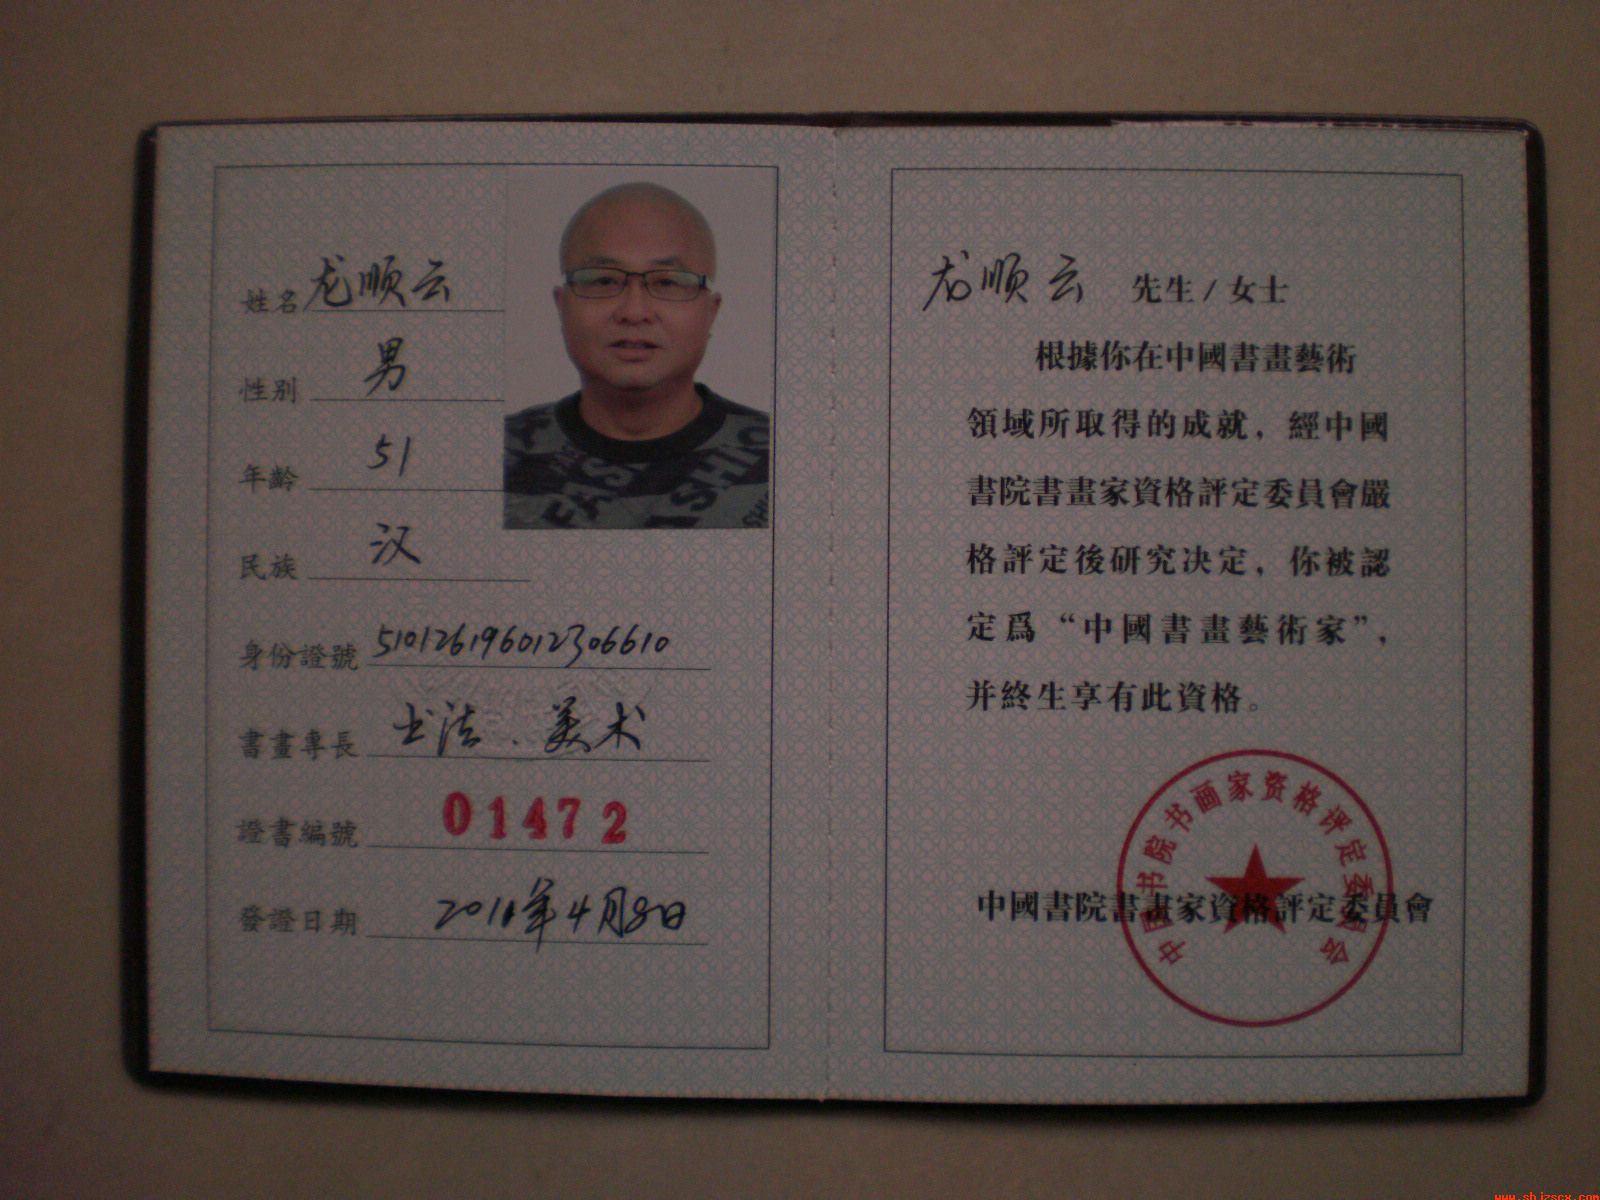 姓名 龙顺云
性别 男
年齡 51
民族 汉
身份證號 510126196012306610
書畫專長 书法、美术
證書編號 01472
發證日期 2011年4月8日
龙顺云 先生/女士
根據你在中國書畫藝術
領域所取得的成就，經中國
書院書畫家資格評定委員會嚴
格評定後研究决定，你被認
定爲“中國書畫藝術家”，
并終生享有此資格。
中國書院書畫家資格評定委員會
中国书院书画家资格评定委员会
FASHION
www.shjzscx.com